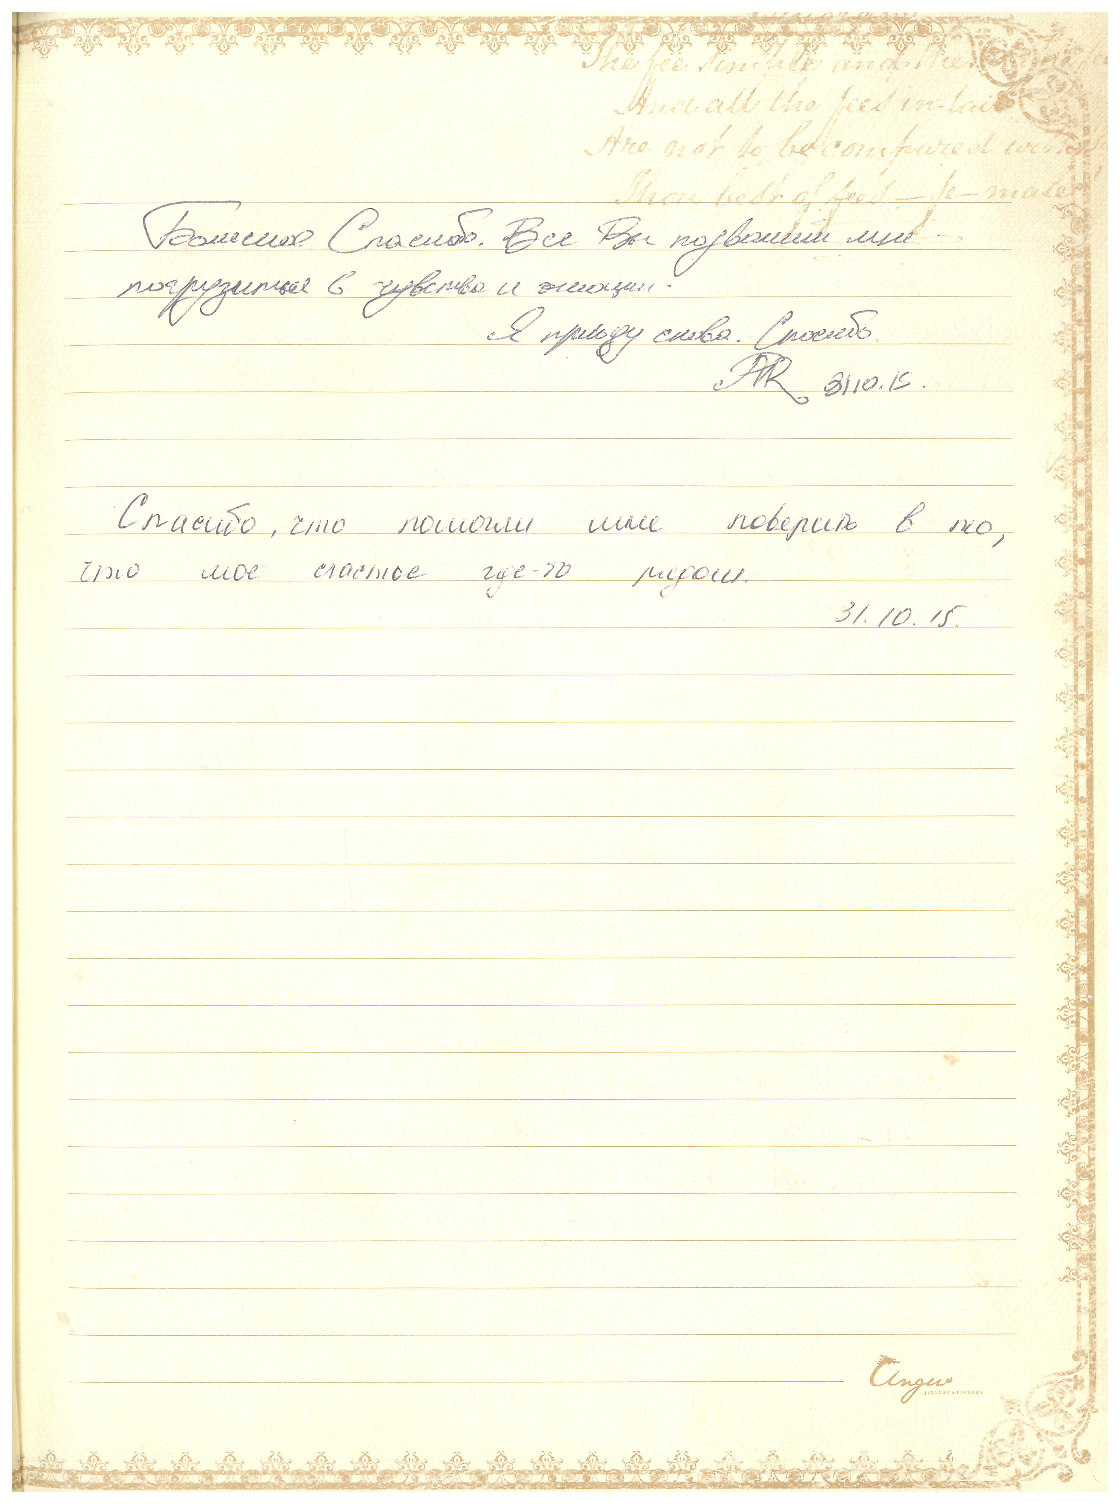 The fee simple and the
And all the fees in tail
Are not to be compared with
Thou best of fees – fe – male!
Большое Спасибо. Все Вы позволили мне
погрузиться в чувства и эмоции.
Я приду снова. Спасибо.
31.10.15.
Спасибо, что помогли мне поверить в то,
что мое счастье где-то рядом.
31.10.15.
Angel